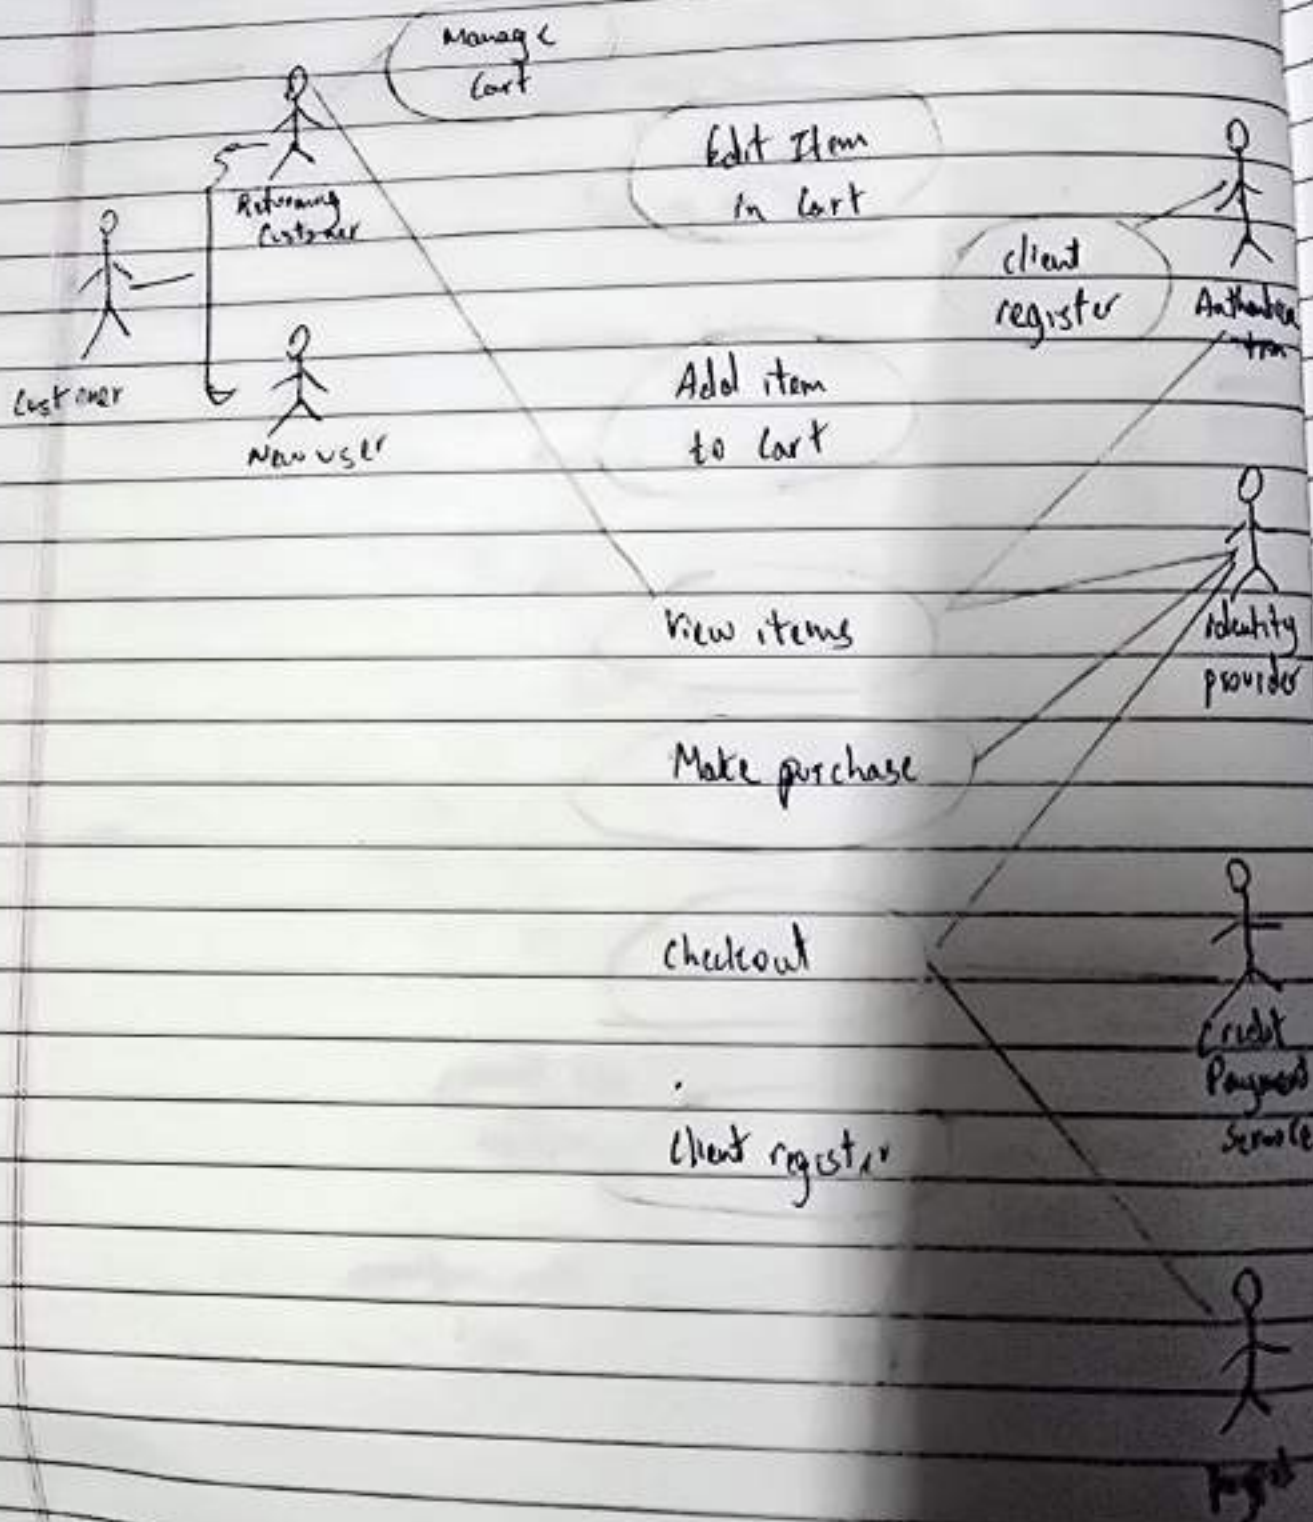 Manage
Cart
Returning
Customer
Customer
New user
Edit Item
in Cart
client
register
Authentica
tion
Add item
to Cart
View items
identity
provider
Make purchase
Checkout
Credit
Payment
Service
Client register